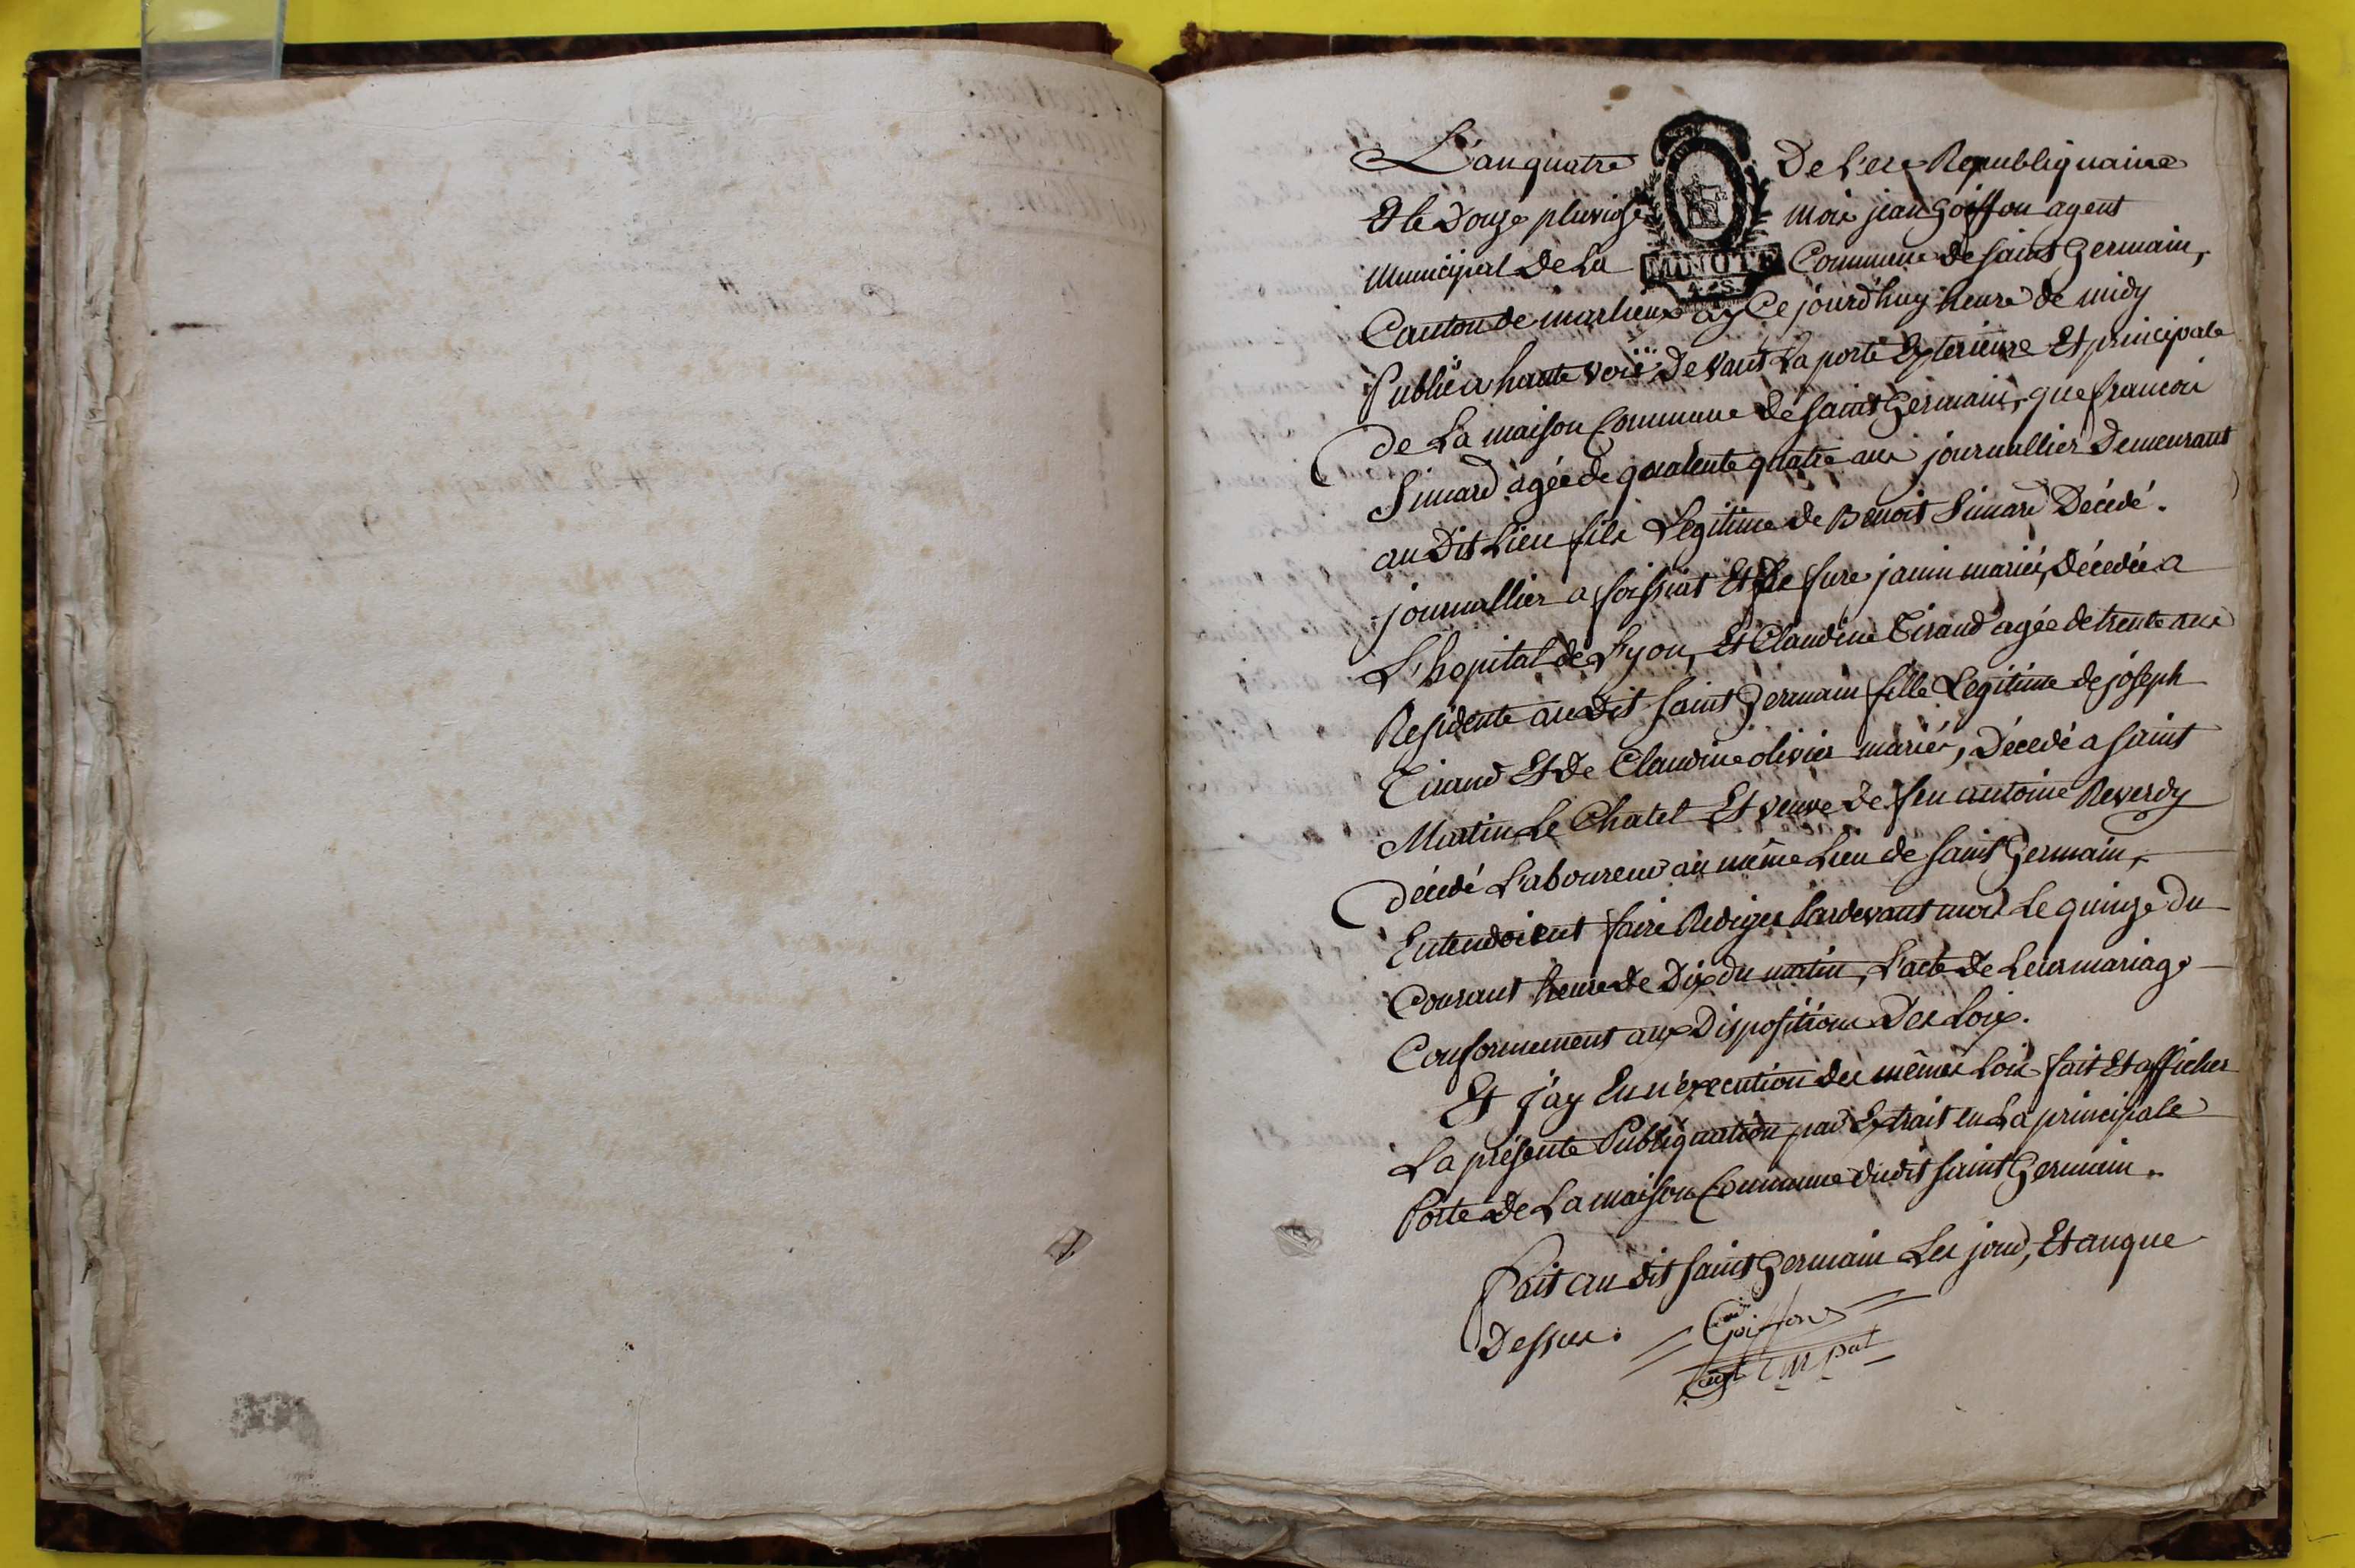 L'an quatre De L'ere Republiquaine
Et le Douze pluviose moi jean Goiffon agent
Municipal De La Commune de saint Germain,
MINUTE
Canton de marlieux ay Ce jourd'huy heure de midy
Publié a haute voix Devant La porte Exterieure Et principale
de La maison Commune de saint Germain, que francoi
Simard agée de quarente quatre ans journallier Demeurant
au Dit Lieu fils Legitime de Benoit Simard Décédé.
journallier a foissiat Et de fure janin mariés, Décedée a
L'hopital de Lyon, Et Claudine Tirand agée de trente ans
Residente au dit saint Germain fille Legitime de joseph
Tirand Et De Claudine olivier mariés, Décedé a saint
Martin Le Chatel Et veuve de feu antoine Reverdy
décédé Laboureur au même Lieu de saint Germain,
Entendoient faire Rediger Pardevant moi Le quinze du
Courant heure de Dix du matin, L'acte de Leur mariage
Conformement aux Dispositions Des Loix.
Et j'ay En n'execution des mêmes Lois fait Et afficher
La présente Publiquation par Extrait en La principale
Porte de La maison Commune dudit saint Germain.
Fait au dit saint Germain Les jour, Et an que
Dessus. Goiffon
agt mpal